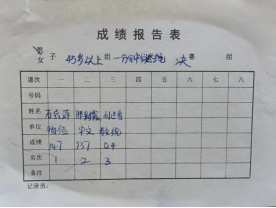 成绩报告表
男
女 子 45岁以上 组 一分钟跳绳 决 赛 组
道次 一 二 三 四 五 六 七 八
号码
姓名
单位 物信 中文 数统
成绩 147 137 124
名次 1 2 3
备注
记录员: